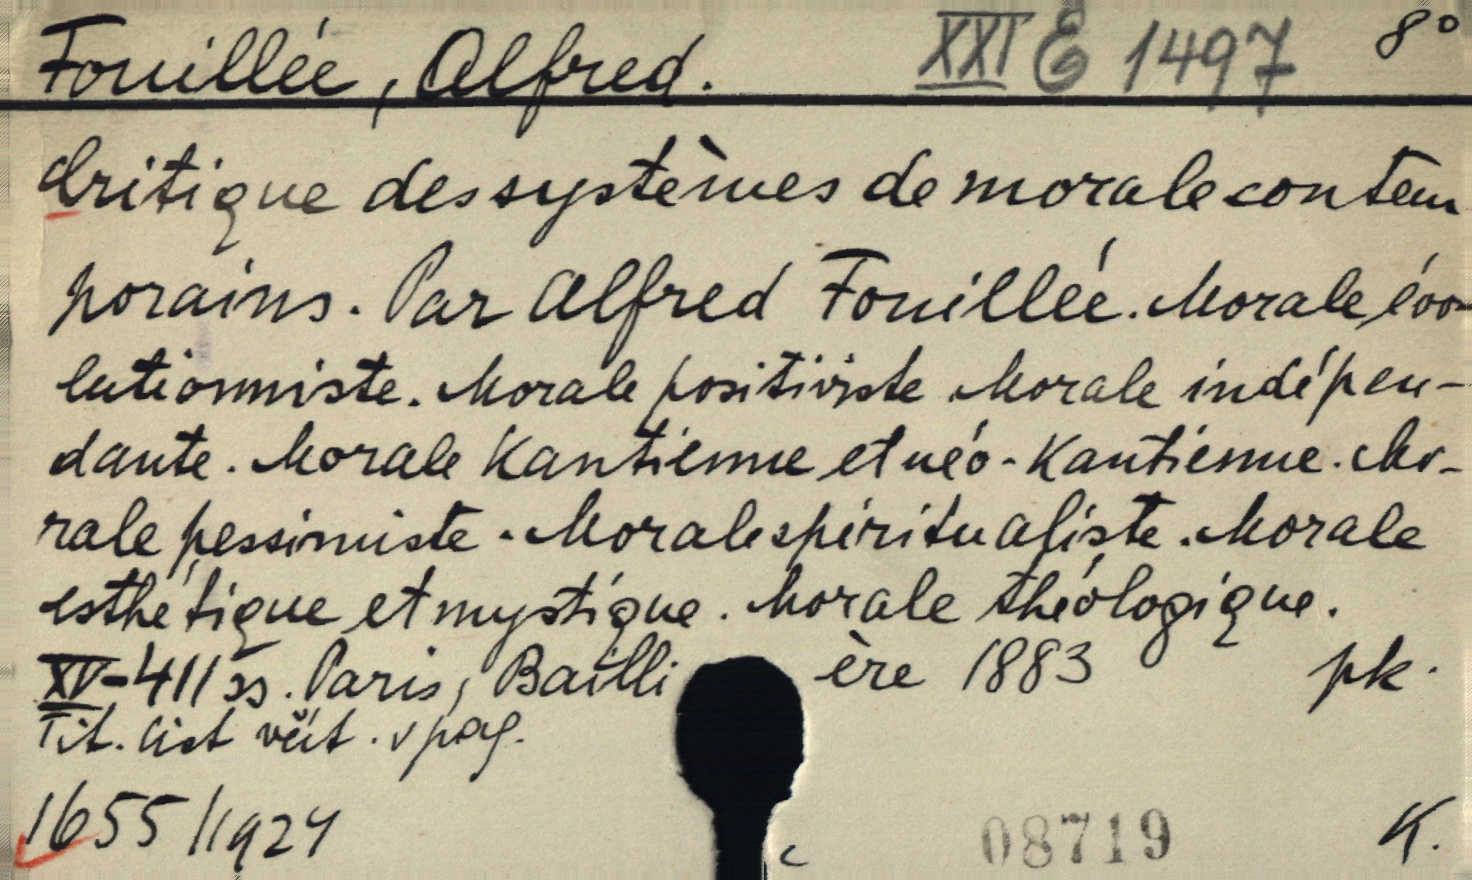 Fouillée, Alfred. XXI E 1497 8°
Critique des systèmes de morale contem
porains. Par Alfred Fouillée. Morale évo-
lutionniste. Morale positiviste Morale indépen-
dante. Morale Kantienne et néo-Kantienne. Mo-
rale pessimiste. Morale spiritualiste. Morale
esthétique et mystique. Morale théologique.
XV-411 ss. Paris, Bailli ère 1883 pk.
Tit. list včít. v pag.
1655/1927
08719 K.